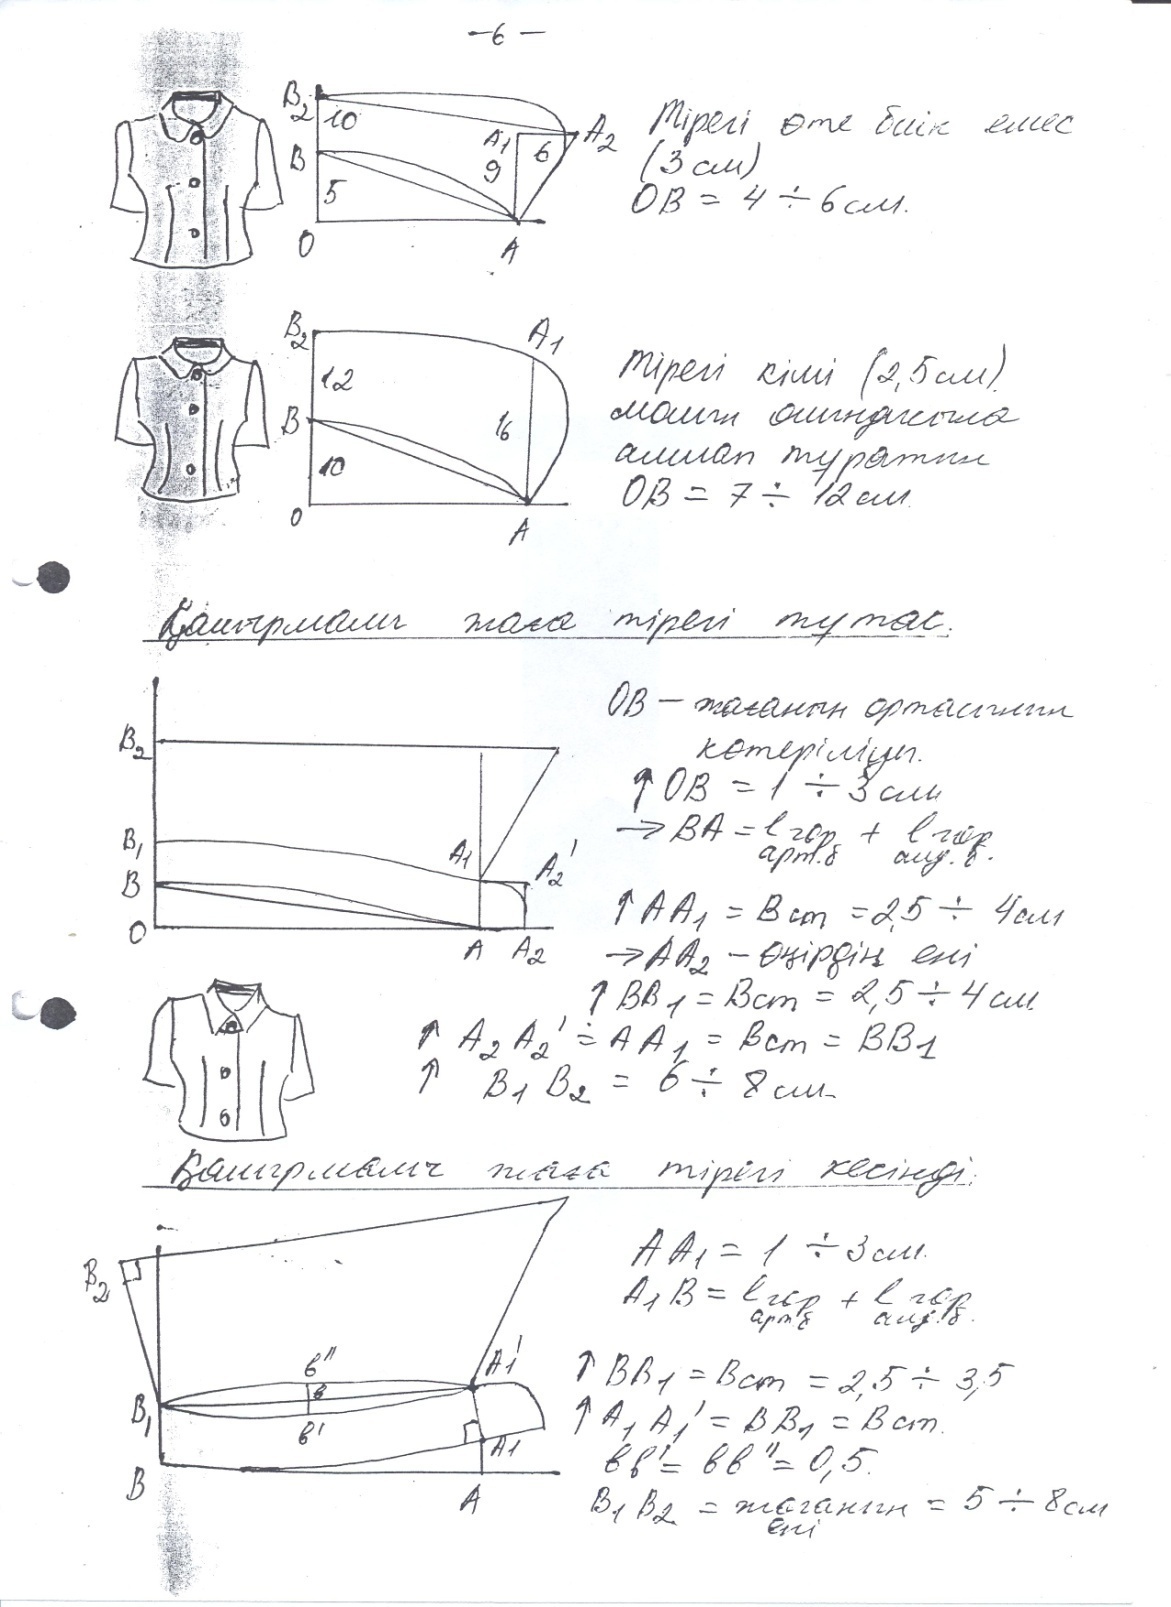 -6-
B2
10
A1
A2
6
9
B
5
O
A
Тірегі өте биік емес
(3 см)
OB = 4 ÷ 6 см.
B2
A1
12
B
16
10
O
A
Тірегі кіші (2,5 см)
OB = 7 ÷ 12 см
Қайырмалы жаға тірегі тұтас.
B2
B1
A1
A2'
B
O
A
A2
OB – жағаның ортасының
көтерілуі.
↑ OB = 1 ÷ 3 см
→ BA = l гор + l гор
арт.б алд.б.
↑ AA1 = Вст = 2,5 ÷ 4 см
→ AA2 – өңірдің ені
↑ BB1 = Вст = 2,5 ÷ 4 см
↑ A2 A2' = AA1 = Вст = BB1
↑ B1 B2 = 6 ÷ 8 см
Қайырмалы жаға тірегі кесінді.
B2
в''
A1'
в
B1
в'
A1
B
A
AA1 = 1 ÷ 3 см.
A1B = l гор + l гор
арт.б алд.б.
↑ BB1 = Вст = 2,5 ÷ 3,5
↑ A1 A1' = BB1 = Вст.
вв' = вв'' = 0,5.
B1 B2 = жағаның = 5 ÷ 8 см
ені